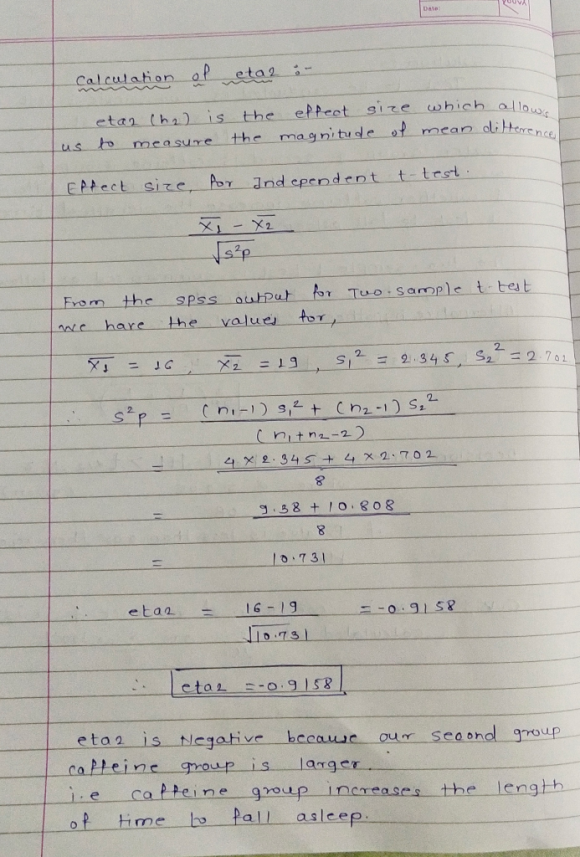 Date:
calculation of eta2 :-
eta2 (h2) is the effect size which allows
us to measure the magnitude of mean difference
Effect size for Independent t-test.
x̄1 - x̄2
√s²p
From the SPSS output for Two-sample t-test
we have the values for,
x̄1 = 16, x̄2 = 19, S1² = 2.345, S2² = 2.702
∴ s²p = (n1-1) s1² + (n2-1) S2²
(n1+n2-2)
= 4 × 2.345 + 4 × 2.702
8
= 9.38 + 10.808
8
= 10.731
∴ eta2 = 16-19 = -0.9158
√10.731
∴ eta2 = -0.9158
eta2 is Negative because our second group
caffeine group is larger.
i.e caffeine group increases the length
of time to fall asleep.